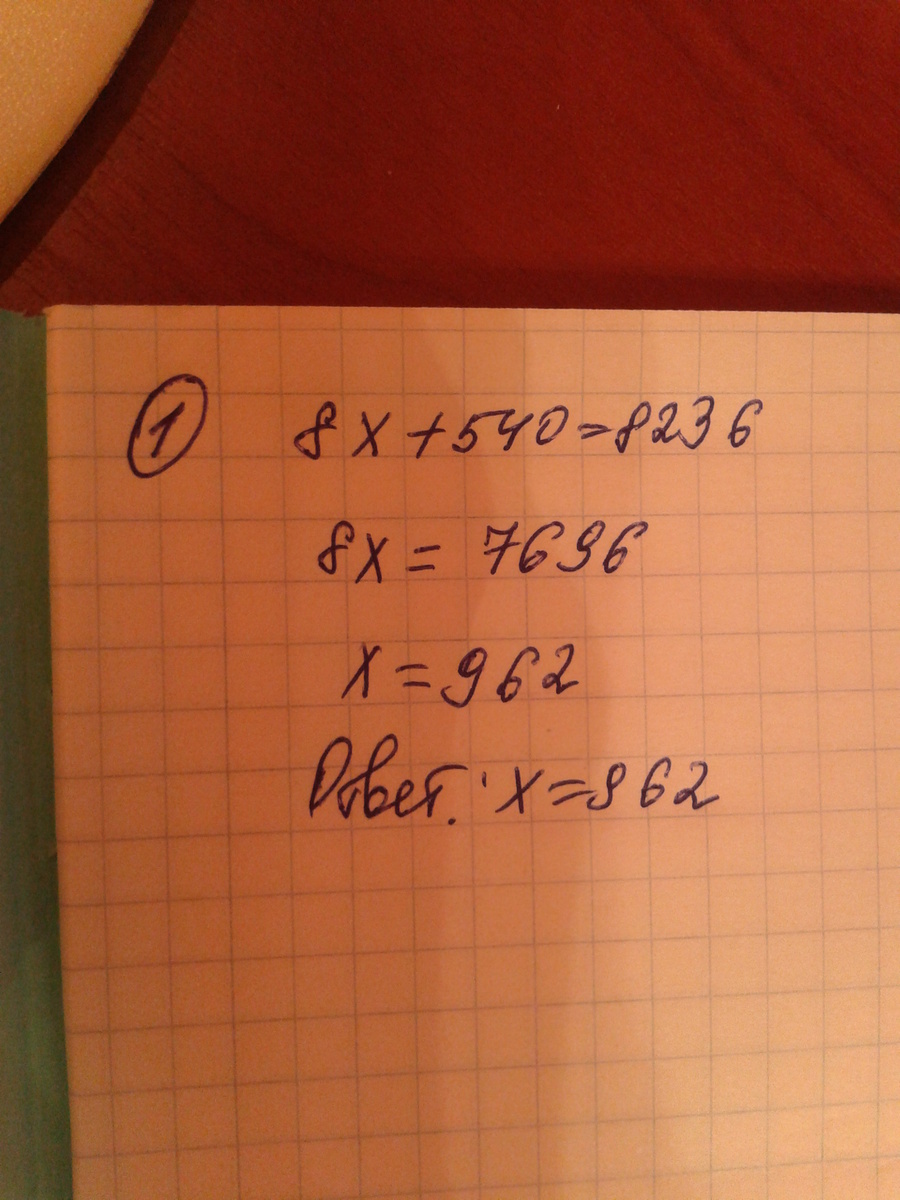 1 8x+540=8236
8x=7696
x=962
Ответ: x=962